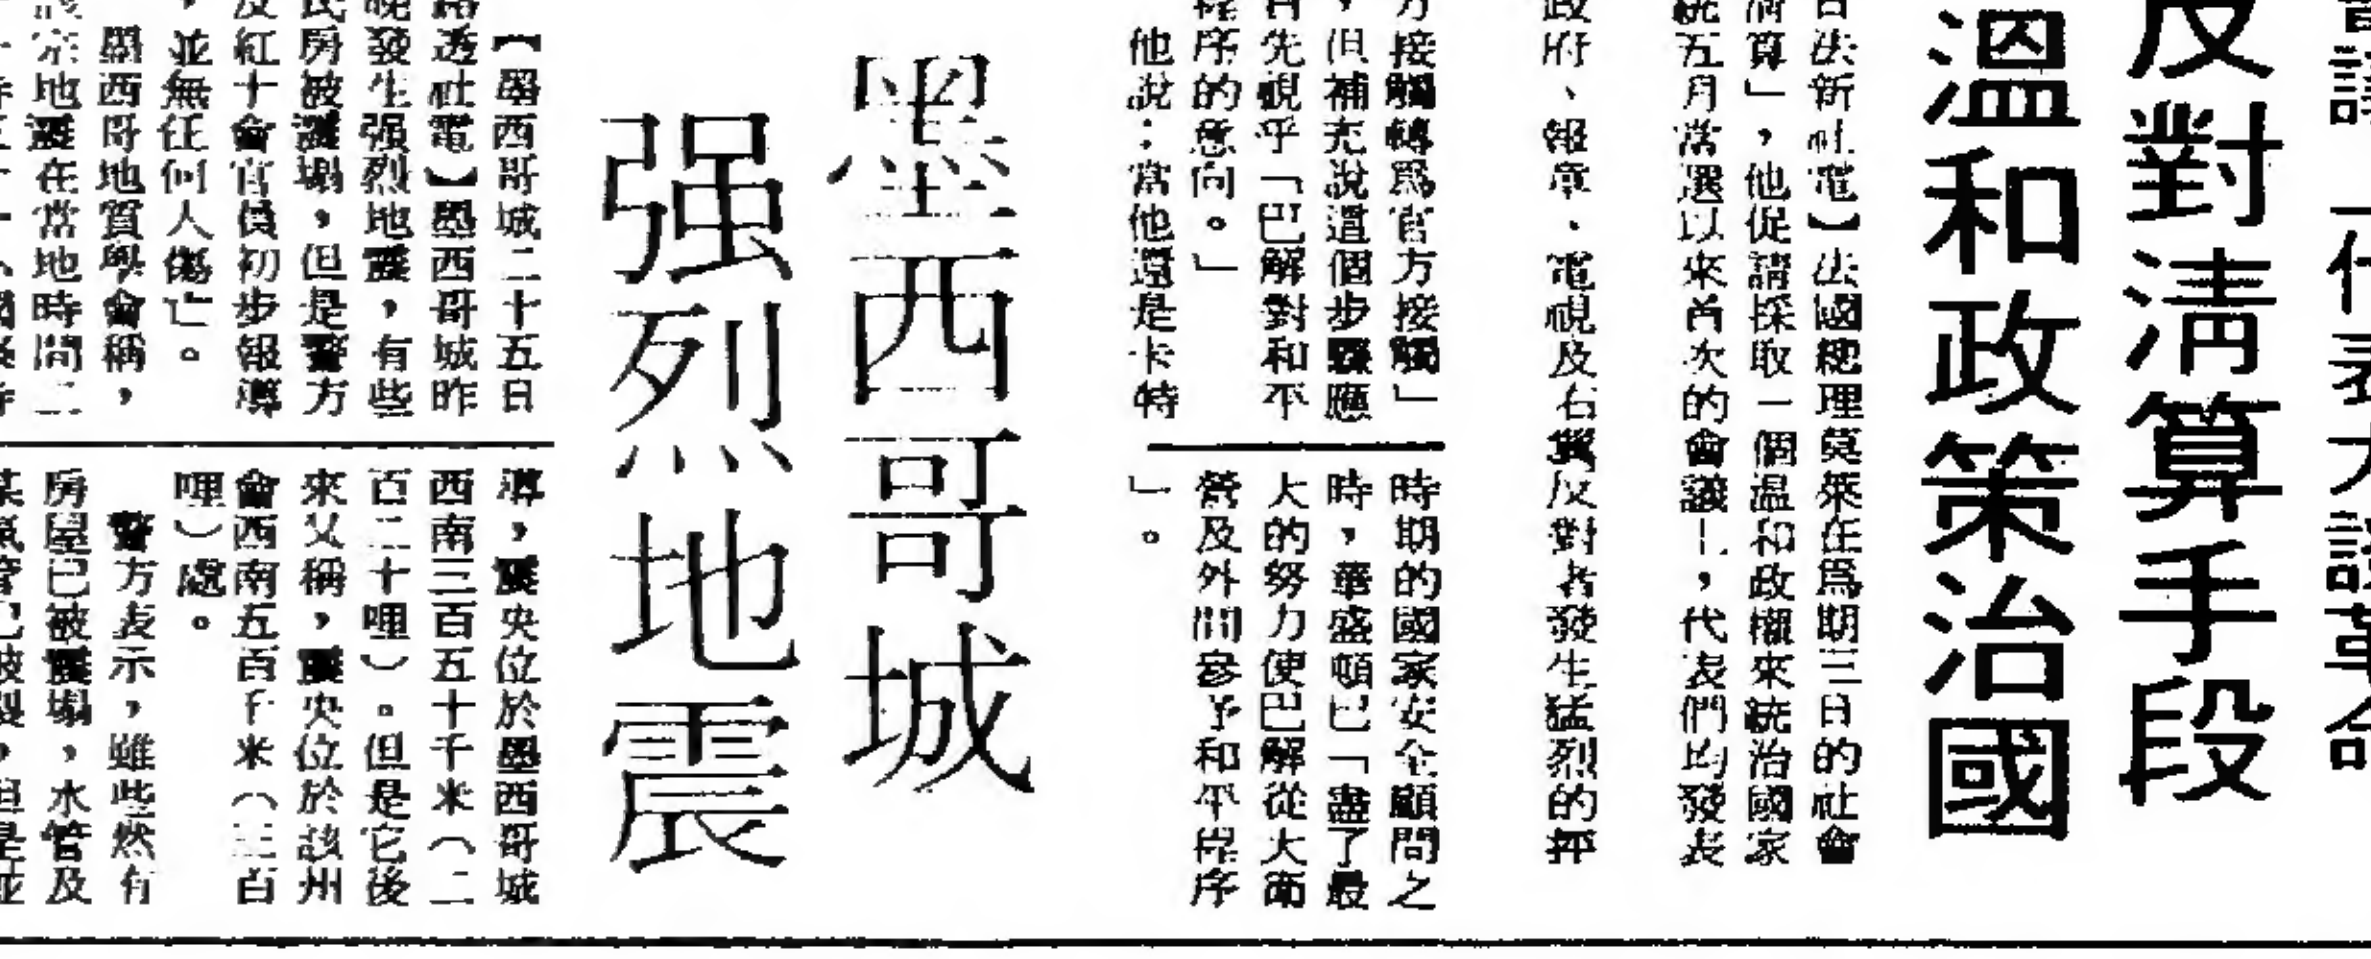 反對清算手段
溫和政策治國
日法新社電】法國總理莫萊在為期三日的社會
清算」，他促請採取一個溫和政權來統治國家
統五月當選以來首次的會議上，代表們均發表
政府、報章、電視及右翼反對者發生猛烈的抨
方接觸轉爲官方接觸」
，但補充說這個步驟應
首先視乎「巴解對和平
程序的意向。」
他說：當他還是卡特
時期的國家安全顧問之
時，華盛頓已「盡了最
大的努力使巴解從大西
營及外間參予和平程序
」。
墨西哥城
强烈地震
【墨西哥城二十五日
路透社電】墨西哥城昨
晚發生强烈地震，有些
民房被震塌，但是警方
及紅十會官員初步報導
，並無任何人傷亡。
墨西哥地質學會稱，
地震在當地時間二
導，震央位於墨西哥城
西南三百五十千米（二
百二十哩）。但是它後
來又稱，震央位於該州
會西南五百千米（三百
哩）處。
警方表示，雖然有些
房屋已被震塌，水管及
某氣管已破裂，但是並